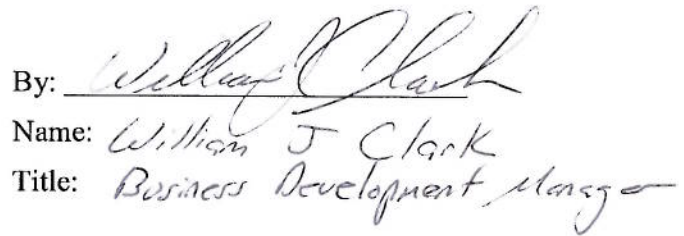 By: William J Clark
Name: William J Clark
Title: Business Development Manager